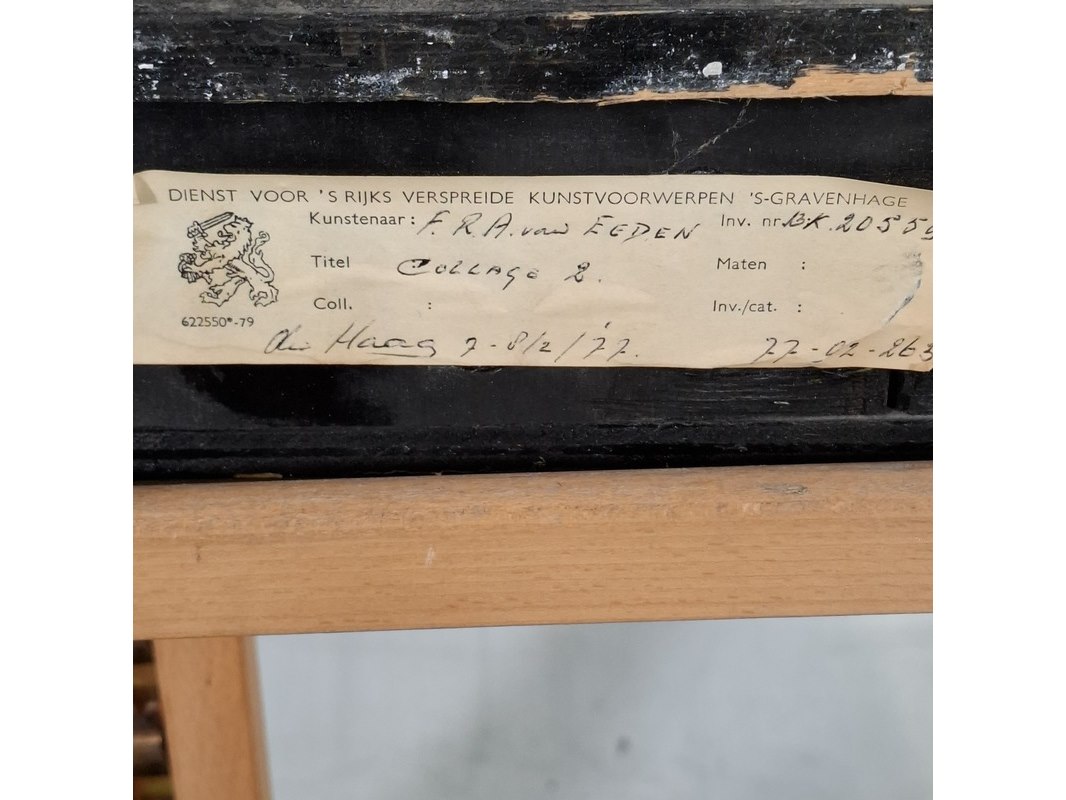 DIENST VOOR 'S RIJKS VERSPREIDE KUNSTVOORWERPEN 'S-GRAVENHAGE
Kunstenaar : F.R.A. van EEDEN Inv. nr. BK. 20559
Titel COLLAGE 2. Maten :
Coll. : Inv./cat. :
622550*-79
den Haag 7-8/2/'77. 77-02-263